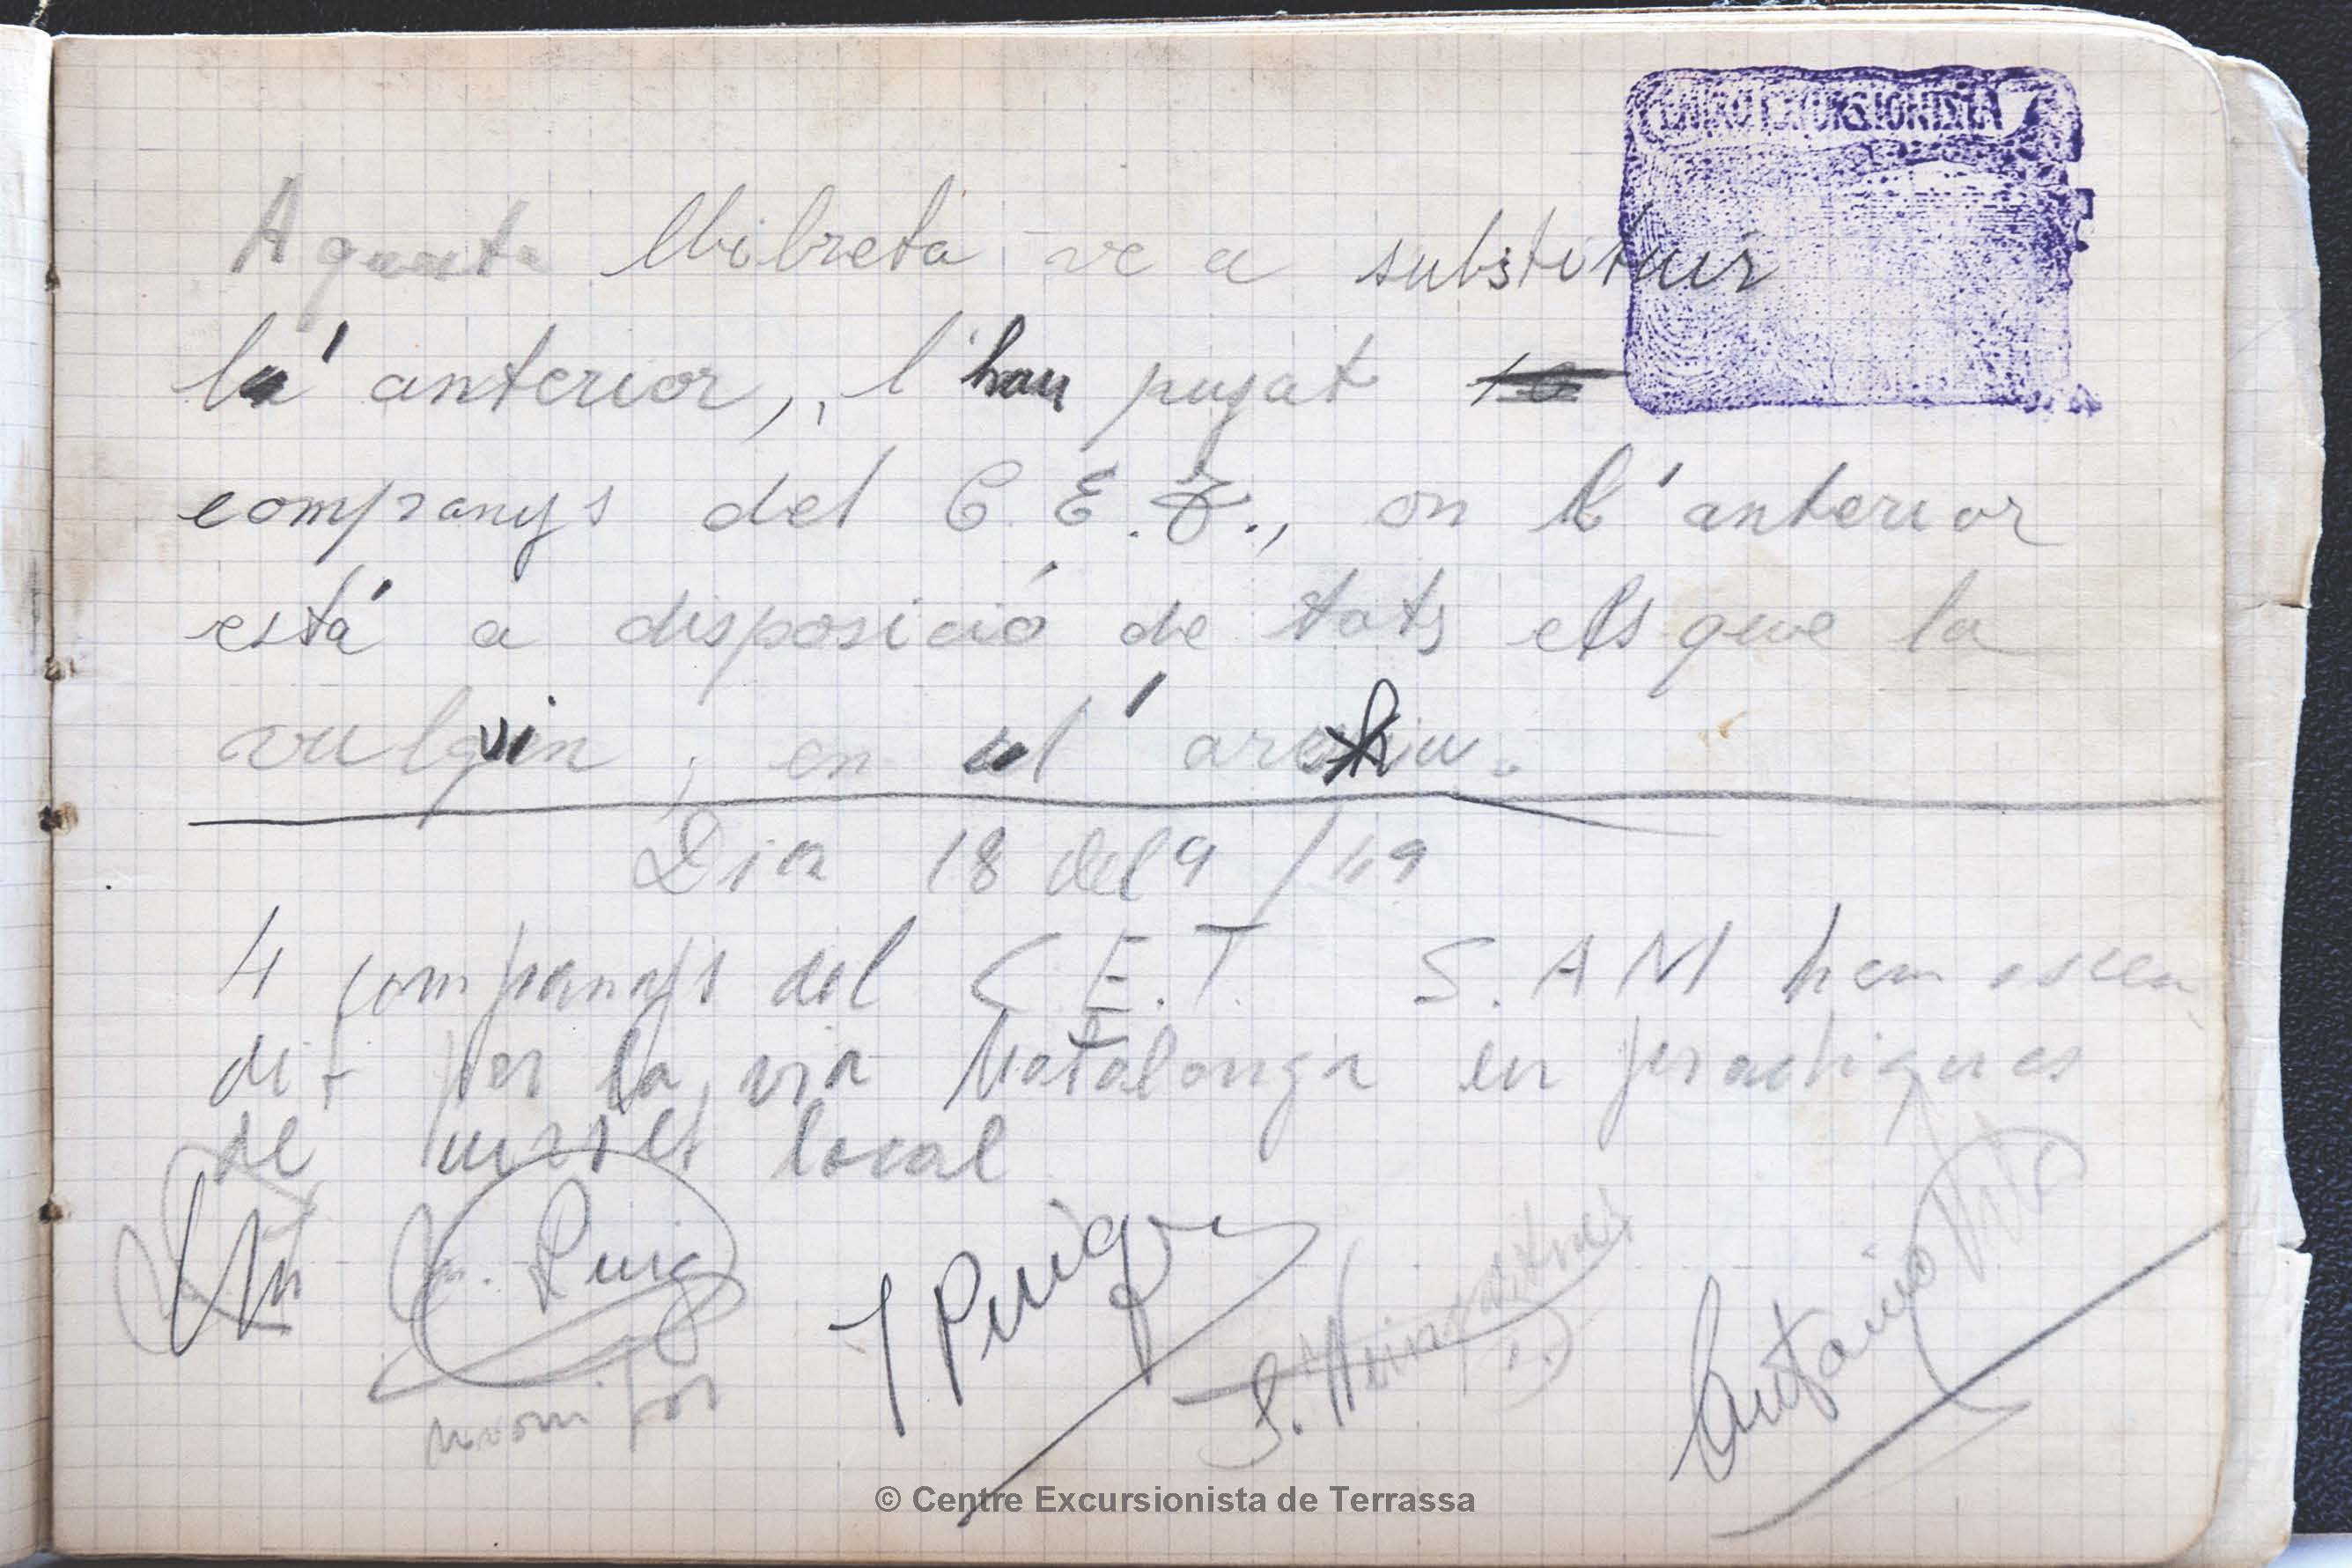 CENTRO EXCURSIONISTA
Aquesta llibreta ve a substituir
l'anterior, l'han pujat
companys del C.E.T., on l'anterior
está a disposició de tots els que la
vulguin, en l'arxiu.
Dia 18 del 9 / 49
4 companys del C.E.T. S.A.M hem escen
dit per la via Matalonga en practiques
de curset local
Puig
J Puig
Antonio
© Centre Excursionista de Terrassa